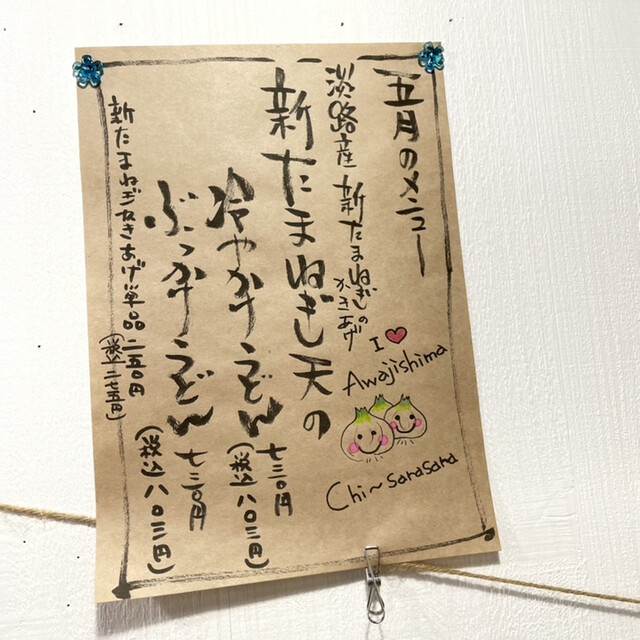 五月のメニュー
淡路産 新たまねぎの
かきあげ
新たまねぎ天の
冷やかけうどん 七三〇円
(税込八〇三円)
ぶっかけうどん 七三〇円
(税込八〇三円)
新たまねぎかきあげ単品 二五〇円
(税込二七五円)
I ❤
Awajishima
Chi~sarasara